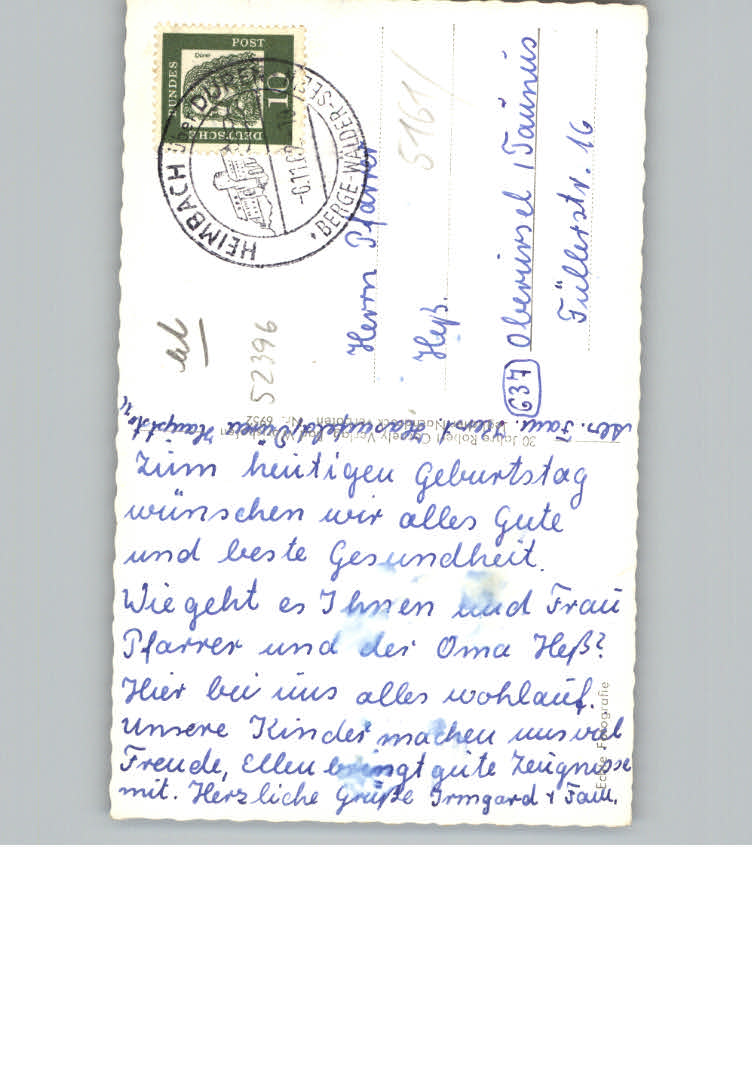 DEUTSCHE BUNDESPOST
10
Dürer
HEIMBACH über DÜREN
BERGE-WÄLDER-SEEN
-6.11.6
5161/
52396
Herrn Pfarrer
Heß.
637 Oberursel / Taunus
Füllerstr. 16
Abs. Fam.
30 Jahre Robert
Nr. 6952
Zum heutigen Geburtstag
wünschen wir alles Gute
und beste Gesundheit.
Wie geht es Ihnen und Frau
Pfarrer und der Oma Heß?
Hier bei uns alles wohlauf.
Unsere Kinder machen uns viel
Freude, Ellen bringt gute Zeugnisse
mit. Herzliche Grüße Irmgard + Fam.
Echte Fotografie